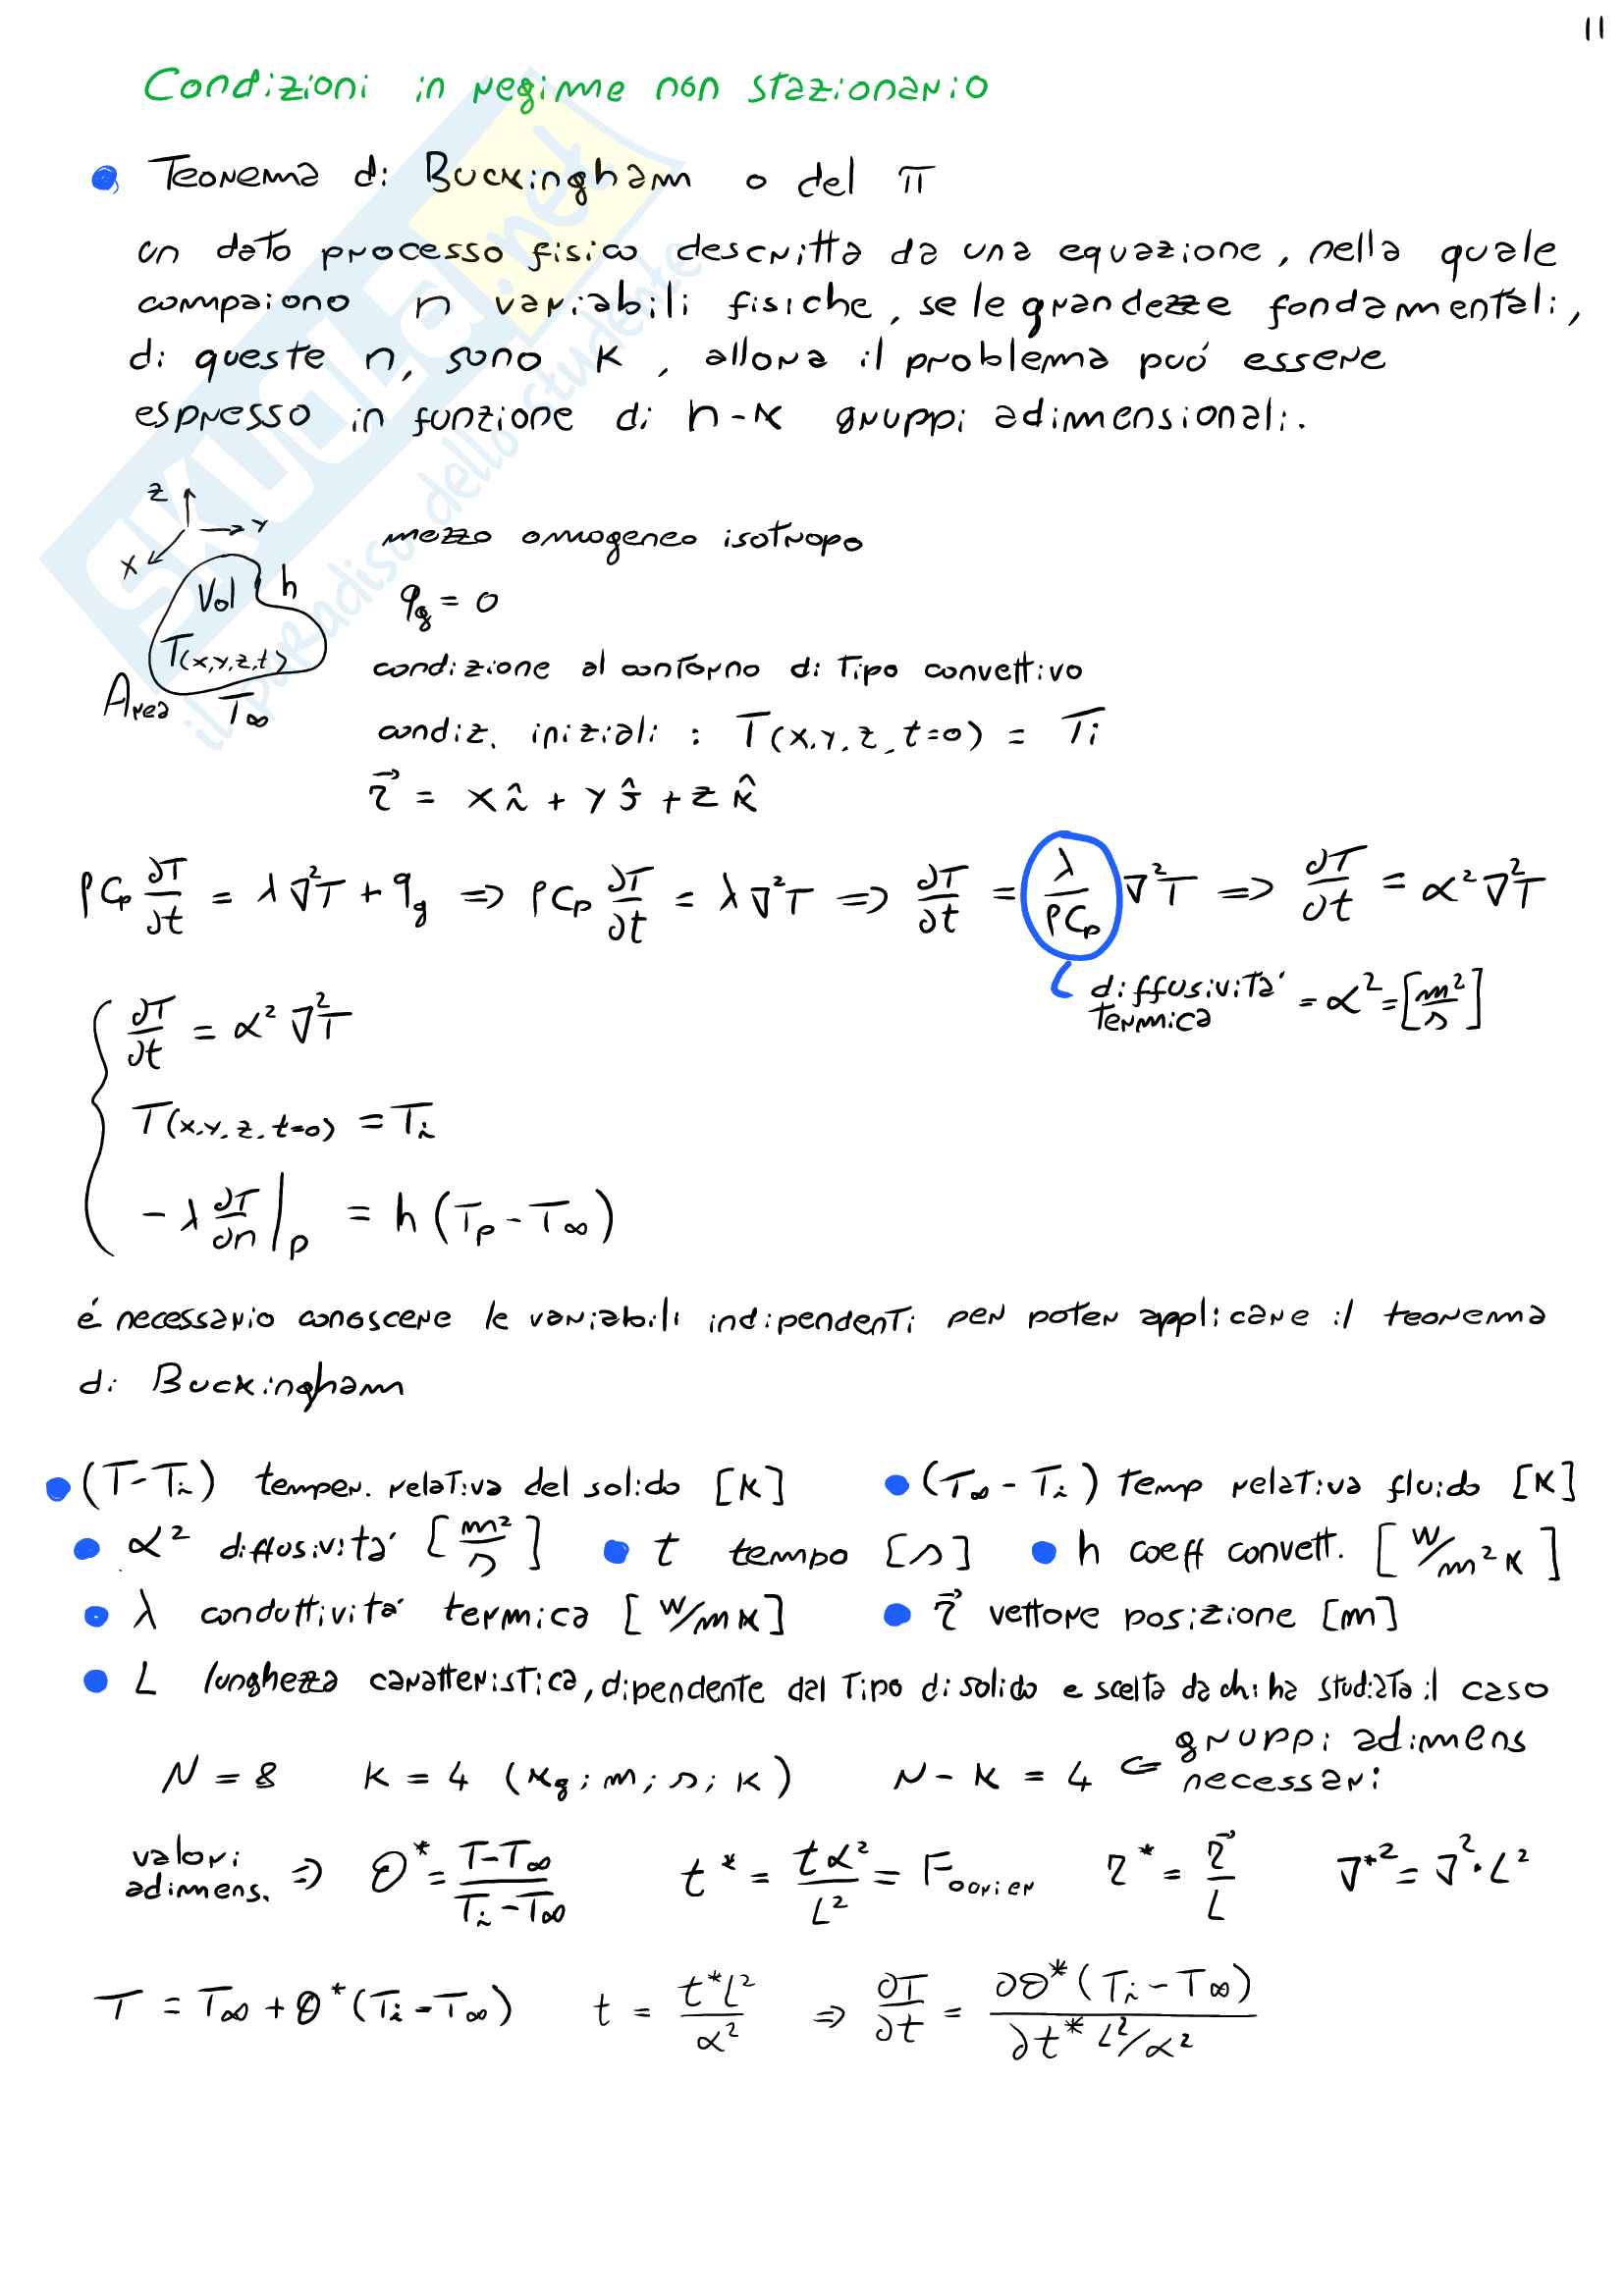 11
Condizioni in regime non stazionario
Teorema di Buckingham o del π
un dato processo fisico descritta da una equazione, nella quale
compaiono n variabili fisiche, se le grandezze fondamentali,
di queste n, sono K, allora il problema può essere
espresso in funzione di n-K gruppi adimensionali.
z y x
mezzo omogeneo isotropo
Vol h
q_g = 0
T(x,y,z,t)
condizione al contorno di tipo convettivo
Area T∞
condiz. iniziali : T(x,y,z,t=0) = Ti
r⃗ = x î + y ĵ + z k̂
ρCp ∂T/∂t = λ∇²T + q_g => ρCp ∂T/∂t = λ∇²T => ∂T/∂t = λ/ρCp ∇²T => ∂T/∂t = α²∇²T
diffusività termica = α² = [m²/s]
∂T/∂t = α²∇²T
T(x,y,z,t=0) = Ti
-λ ∂T/∂n |p = h(Tp - T∞)
é necessario conoscere le variabili indipendenti per poter applicare il teorema
di Buckingham
(T-Ti) temper. relativa del solido [K] (T∞-Ti) temp relativa fluido [K]
α² diffusività [m²/s] t tempo [s] h coeff convett. [W/m²K]
λ conduttività termica [W/mK] r⃗ vettore posizione [m]
L lunghezza caratteristica, dipendente dal tipo di solido e scelta da chi ha studiato il caso
N = 8 K = 4 (kg; m; s; K) N-K = 4 <= gruppi adimens necessari
valori adimens. => Θ* = T-T∞/Ti-T∞ t* = tα²/L² = Fourier r* = r⃗/L ∇*² = ∇²·L²
T = T∞ + Θ*(Ti-T∞) t = t*L²/α² => ∂T/∂t = ∂Θ*(Ti-T∞)/∂t* L²/α²
SKUOLA.net
il paradiso dello studente